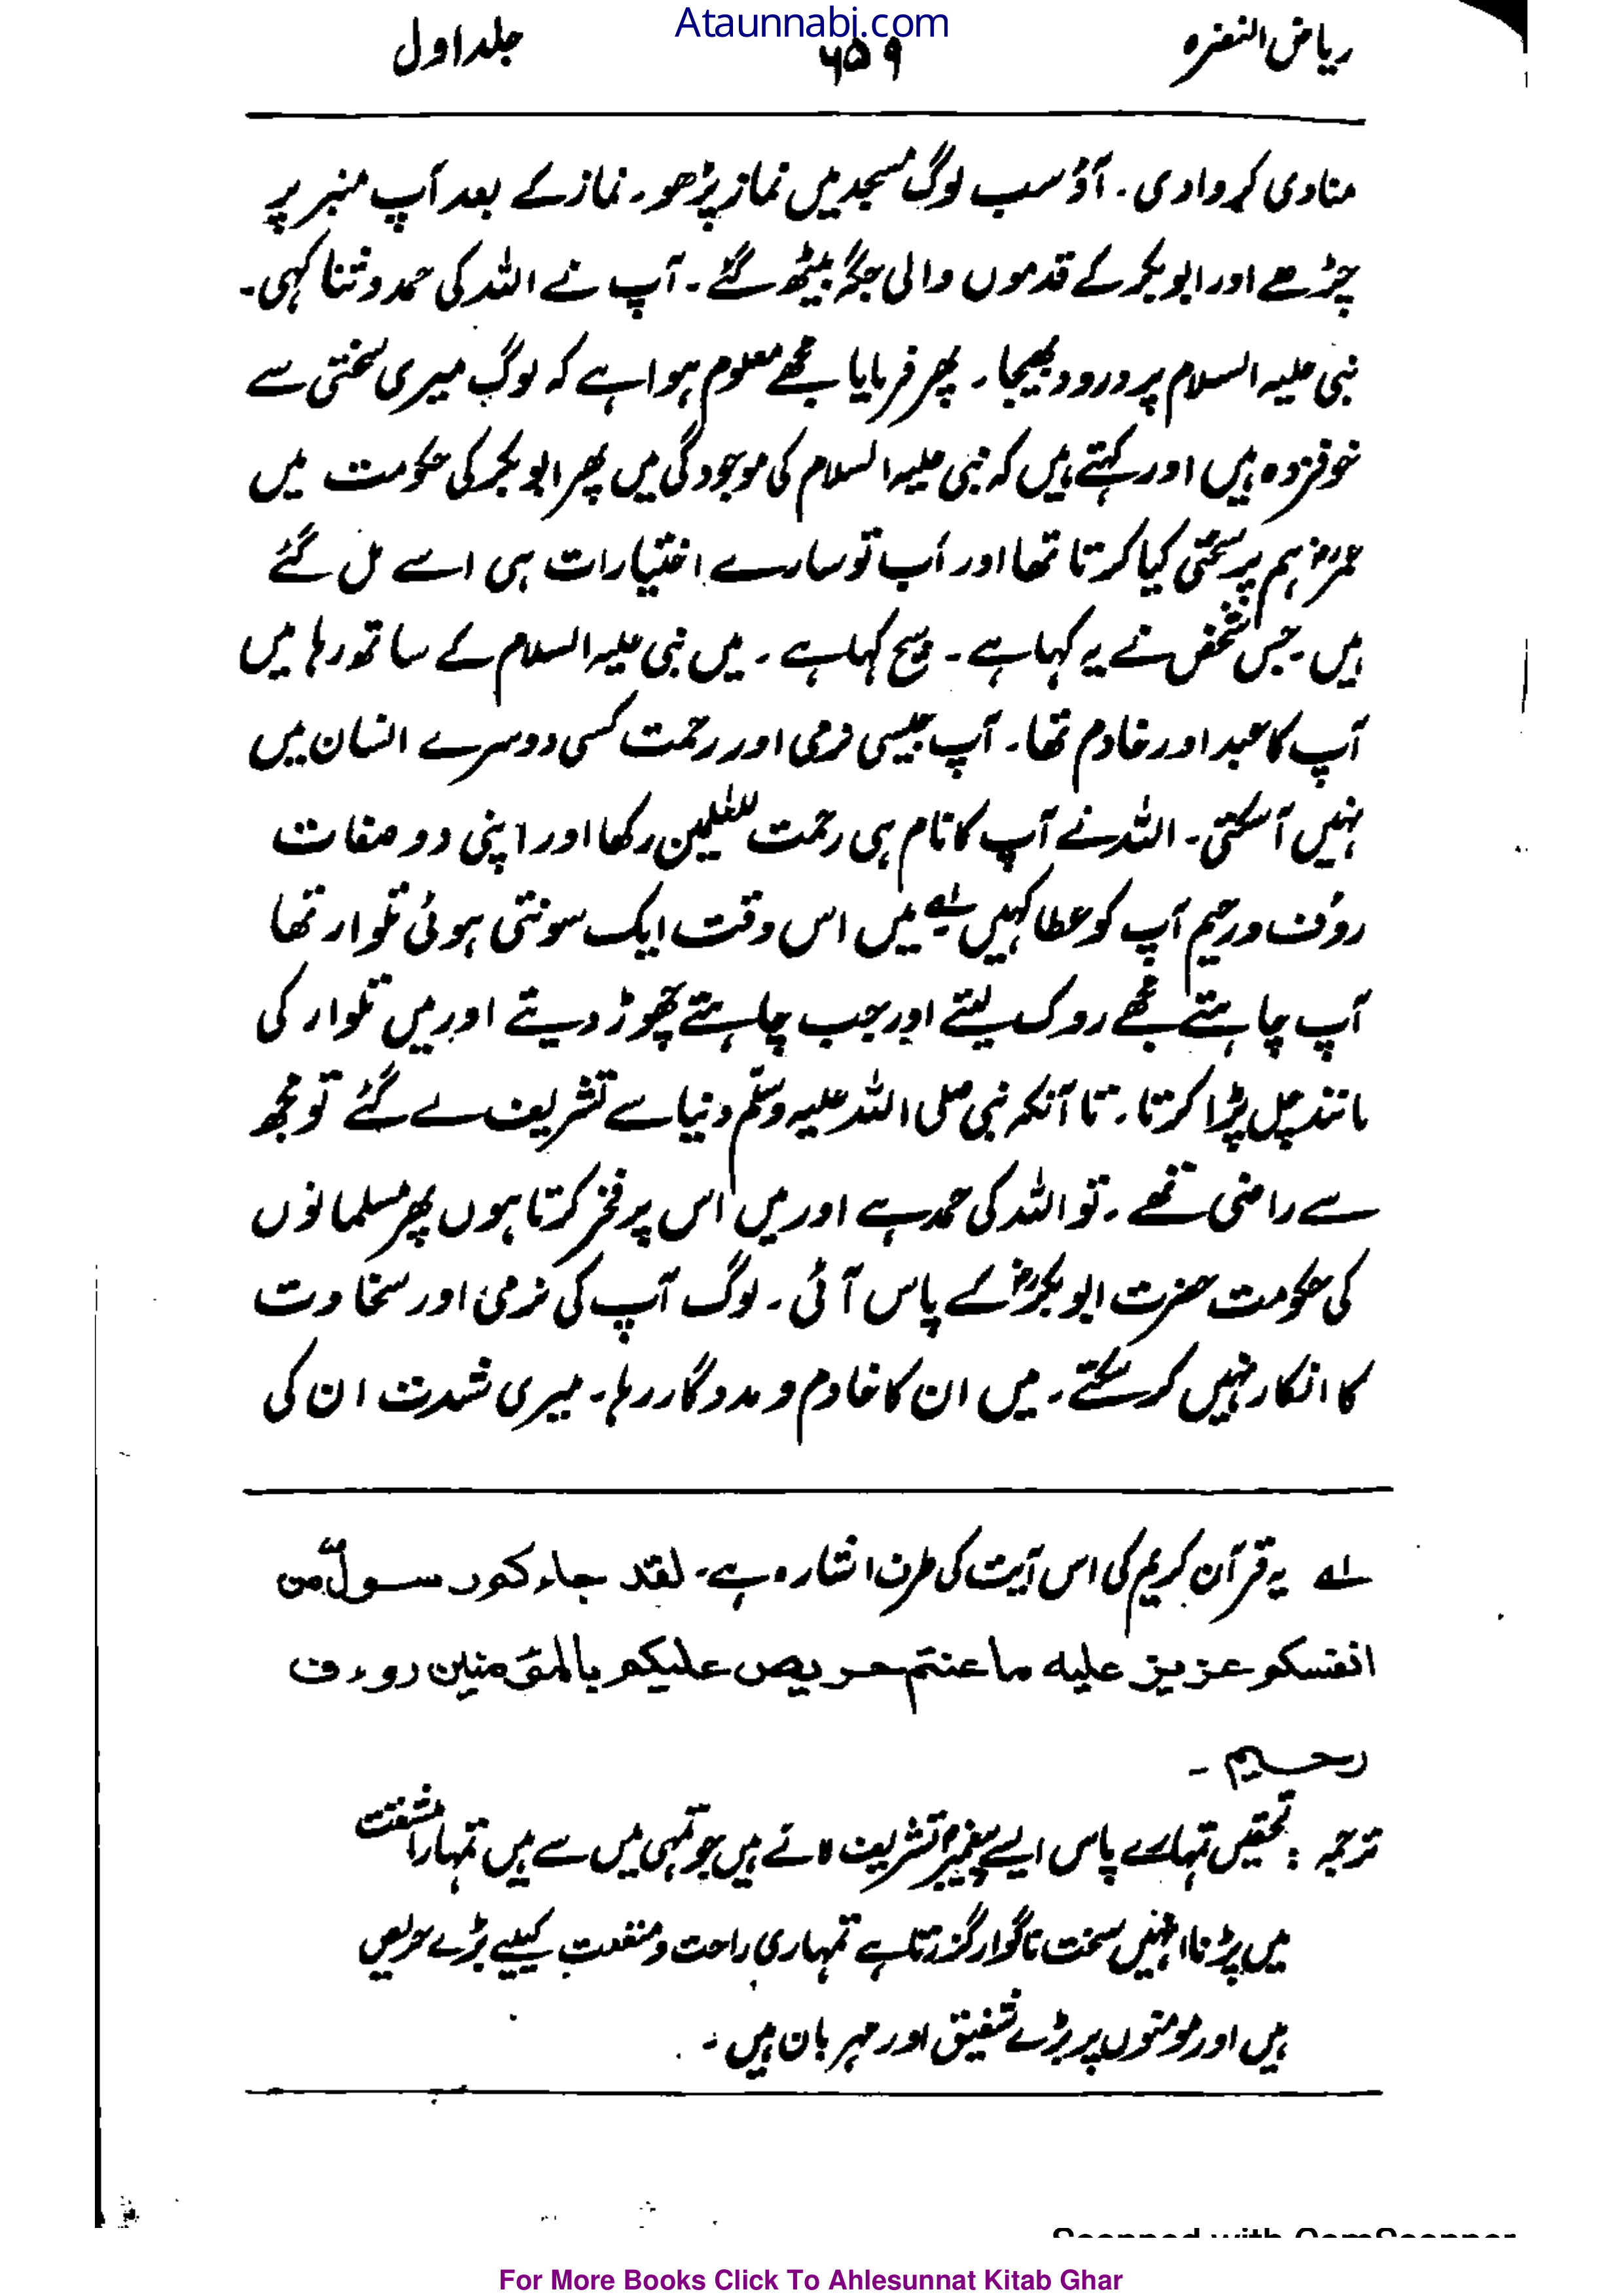 Ataunnabi.com
ریاض النضرہ ۶۵۹ جلد اول
منادی کروا دی۔ آؤ سب لوگ مسجد میں نماز پڑھو۔ نماز کے بعد آپ منبر پر
چڑھے اور ابوبکر کے قدموں والی جگہ بیٹھ گئے۔ آپ نے اللہ کی حمد و ثنا کہی۔
نبی علیہ السلام پر درود بھیجا۔ پھر فرمایا مجھے معلوم ہوا ہے کہ لوگ میری سختی سے
خوفزدہ ہیں اور کہتے ہیں کہ نبی علیہ السلام کی موجودگی میں پھر ابوبکر کی حکومت میں
عمرؓ ہم پر سختی کیا کرتا تھا اور اب تو سارے اختیارات ہی اسے مل گئے
ہیں۔ جس شخص نے یہ کہا ہے۔ سچ کہا ہے۔ میں نبی علیہ السلام کے ساتھ رہا میں
آپ کا عبد اور خادم تھا۔ آپ جیسی نرمی اور رحمت کسی دوسرے انسان میں
نہیں آ سکتی۔ اللہ نے آپ کا نام ہی رحمت للعٰلمین رکھا اور اپنی دو صفات
رؤف و رحیم آپ کو عطا کہیں لہ میں اس وقت ایک سونتی ہوئی تلوار تھا
آپ چاہتے مجھے روک لیتے اور جب چاہتے چھوڑ دیتے اور میں تلوار کی
مانند چل پڑا کرتا۔ تا آنکہ نبی صلی اللہ علیہ وسلّم دنیا سے تشریف لے گئے تو مجھ
سے راضی تھے۔ تو اللہ کی حمد ہے اور میں اس پر فخر کرتا ہوں پھر مسلمانوں
کی حکومت حضرت ابوبکرؓ کے پاس آئی۔ لوگ آپ کی نرمی اور سخاوت
کا انکار نہیں کر سکتے۔ میں ان کا خادم و مددگار رہا۔ میری شدت ان کی
لہ یہ قرآن کریم کی اس آیت کی طرف اشارہ ہے۔ لقد جاءکور سولٌ من
انفسکو عزیز علیه ما عنتم حریص علیکم بالمؤمنین روءف
رحیم ۔
ترجمہ : تحقیق تمہارے پاس ایسے پیغمبر تشریف لائے ہیں جو تمہی میں سے ہیں تمہارا مشقت
میں پڑنا انہیں سخت ناگوار گزرتا ہے تمہاری راحت و منفعت کیلیے بڑے حریص
ہیں اور مومنوں پر بڑے شفیق اور مہربان ہیں۔
Scanned with CamScanner
For More Books Click To Ahlesunnat Kitab Ghar